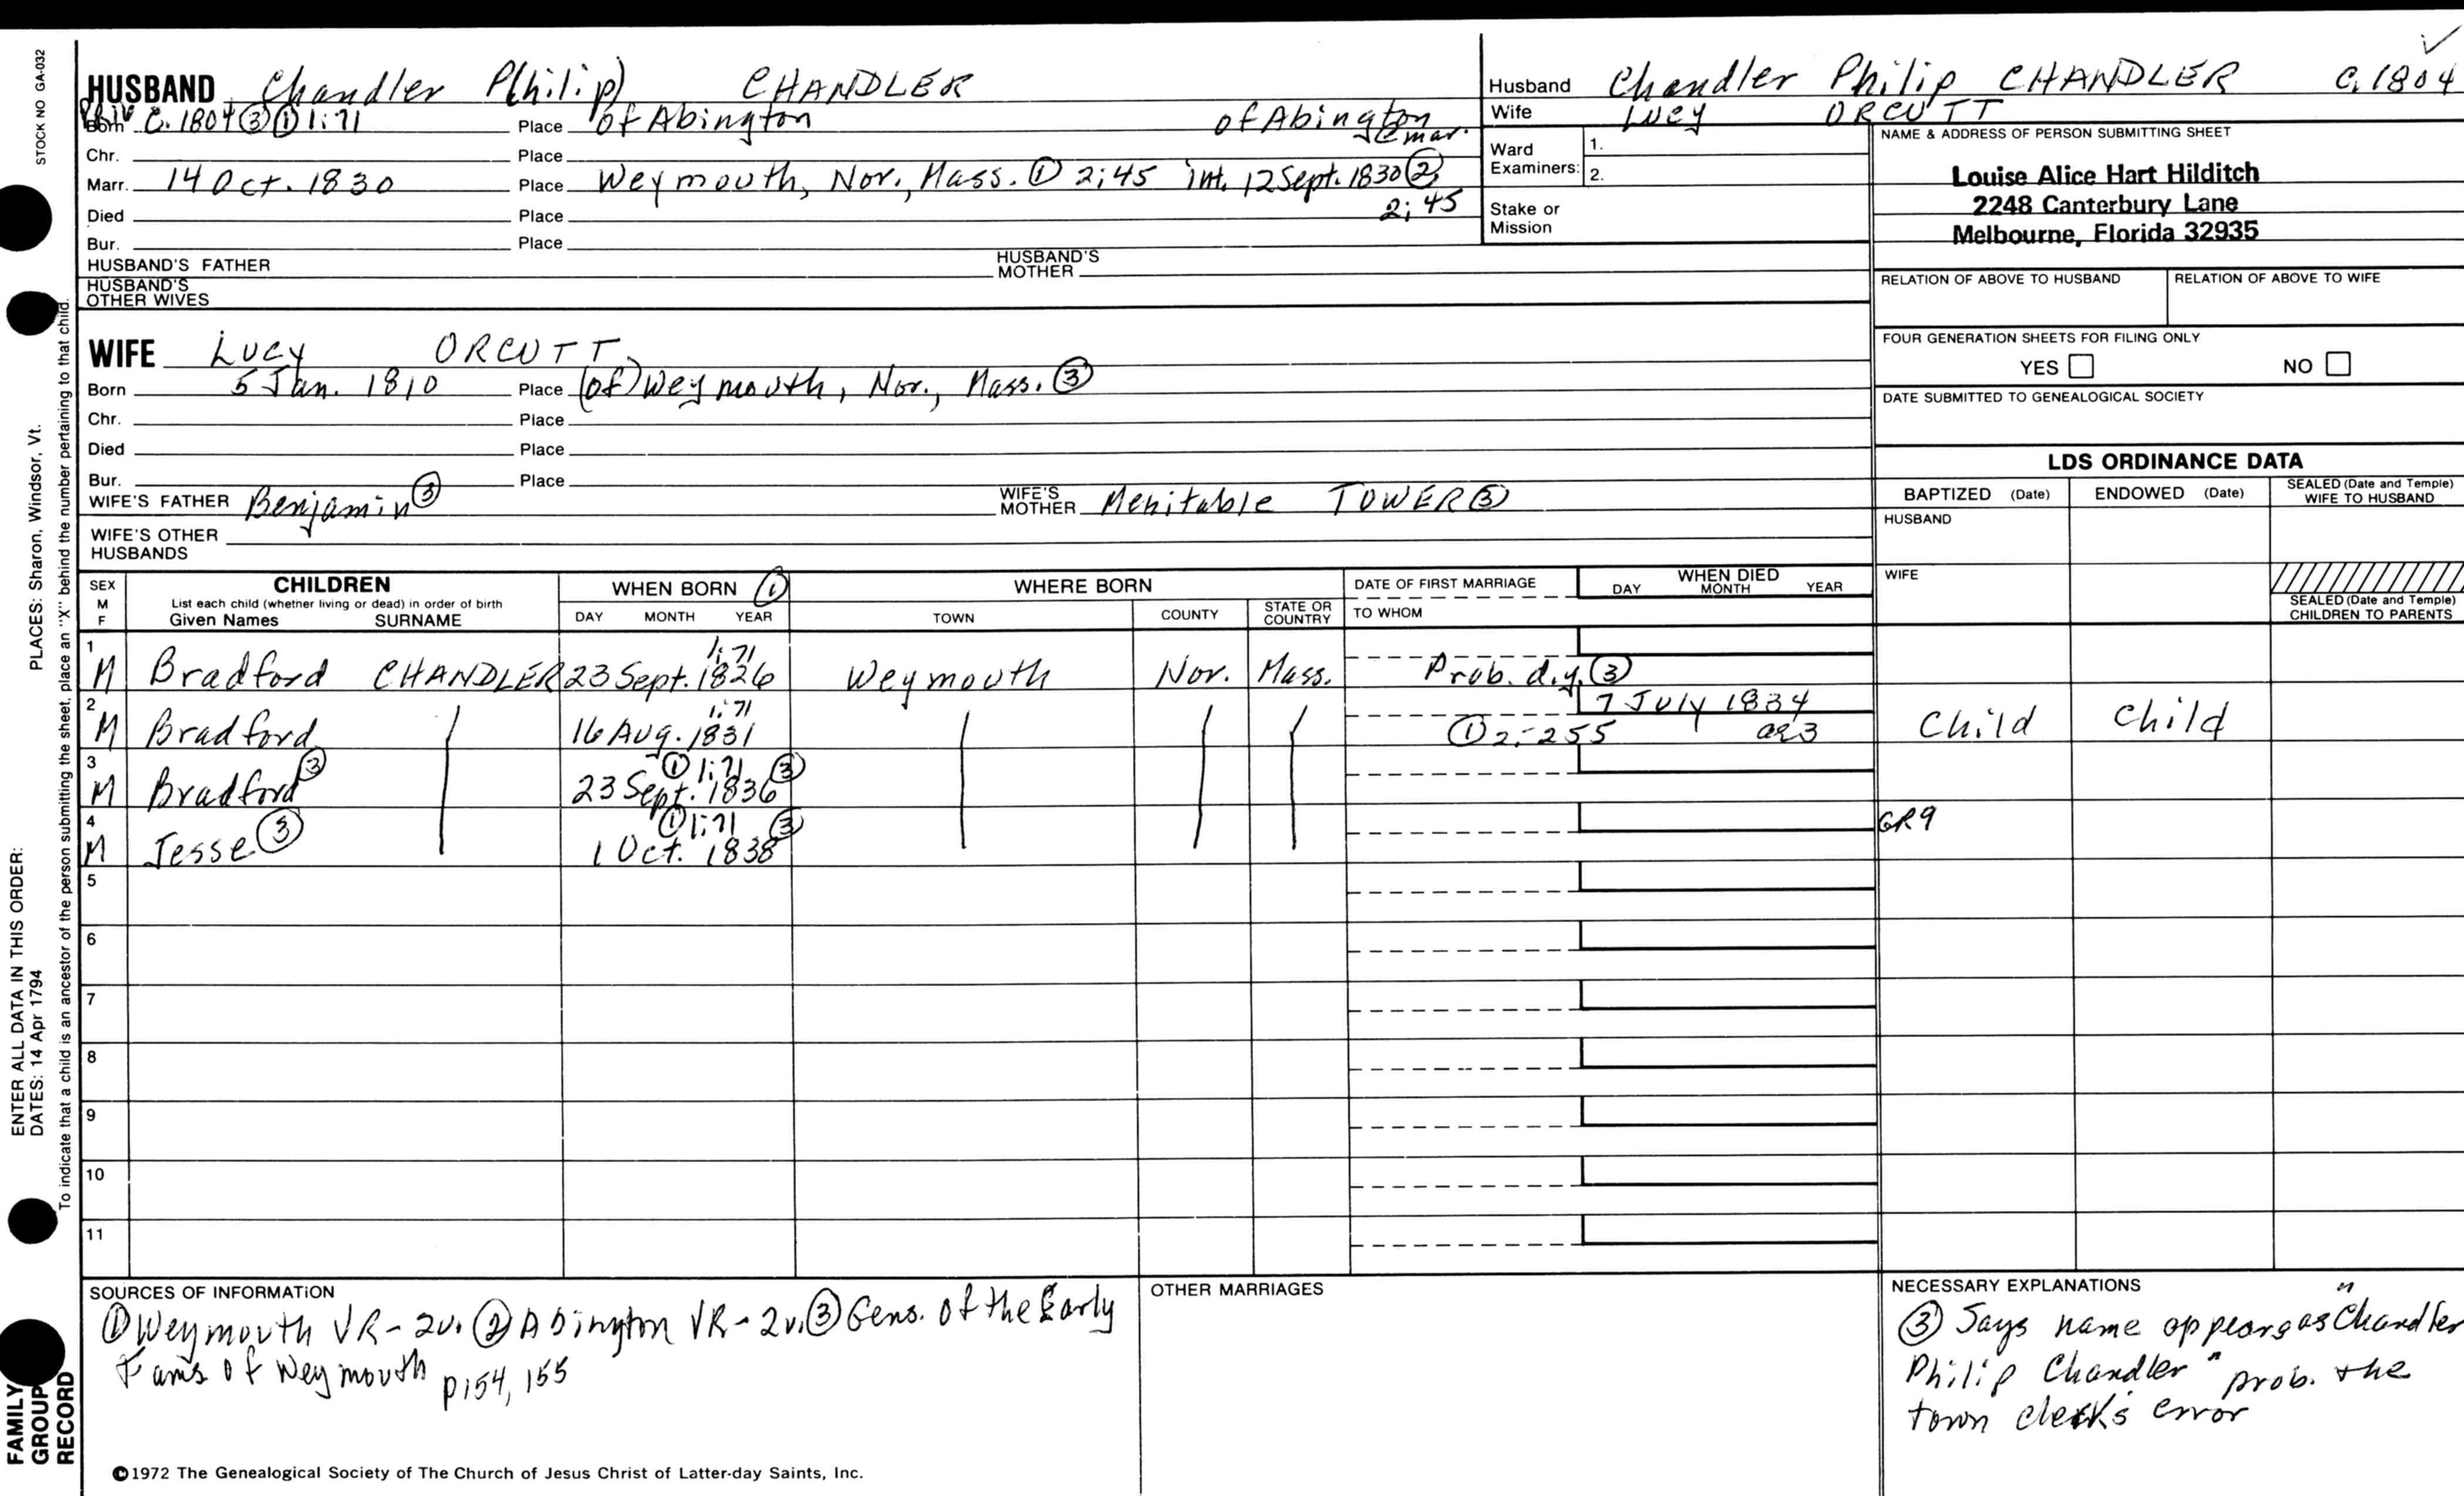 STOCK NO GA-032
HUSBAND Chandler P(hilip) CHANDLER
Born C. 1804 ③ ① 1:71 Place of Abington of Abington
@ mar.
Chr. Place
Marr. 14 Oct. 1830 Place Weymouth, Nor., Mass. ① 2:45 int. 12 Sept. 1830 ②
2:45
Died Place
Bur. Place
HUSBAND'S FATHER HUSBAND'S MOTHER
HUSBAND'S OTHER WIVES
Husband Chandler Philip CHANDLER C. 1804
Wife Lucy ORCUTT
Ward Examiners: 1.
2.
Stake or Mission
NAME & ADDRESS OF PERSON SUBMITTING SHEET
Louise Alice Hart Hilditch
2248 Canterbury Lane
Melbourne, Florida 32935
RELATION OF ABOVE TO HUSBAND RELATION OF ABOVE TO WIFE
FOUR GENERATION SHEETS FOR FILING ONLY
YES NO
DATE SUBMITTED TO GENEALOGICAL SOCIETY
WIFE Lucy ORCUTT
Born 5 Jan. 1810 Place (of) Weymouth, Nor., Mass. ③
Chr. Place
Died Place
Bur. Place
WIFE'S FATHER Benjamin ③ WIFE'S MOTHER Mehitable TOWER ③
WIFE'S OTHER HUSBANDS
LDS ORDINANCE DATA
BAPTIZED (Date) ENDOWED (Date) SEALED (Date and Temple) WIFE TO HUSBAND
HUSBAND
WIFE
SEALED (Date and Temple) CHILDREN TO PARENTS
SEX M F CHILDREN WHEN BORN ① WHERE BORN DATE OF FIRST MARRIAGE WHEN DIED
List each child (whether living or dead) in order of birth
Given Names SURNAME DAY MONTH YEAR TOWN COUNTY STATE OR COUNTRY TO WHOM DAY MONTH YEAR
1 1:71
M Bradford CHANDLER 23 Sept. 1826 Weymouth Nor. Mass. Prob. d.y. ③
2 1:71 7 July 1834
M Bradford 16 Aug. 1831 ① 2:255 ae 3 Child Child
3 ① 1:71 ③
M Bradford ③ 23 Sept. 1836
4 ① 1:71 ③ GR9
M Jesse ③ 1 Oct. 1838
5
6
7
8
9
10
11
SOURCES OF INFORMATION
① Weymouth VR - 2v. ② Abington VR - 2v. ③ Gens. of the Early
Fams of Weymouth p154, 155
OTHER MARRIAGES
NECESSARY EXPLANATIONS
③ Says name appears as "Chandler
Philip Chandler" prob. the
town clerk's error
©1972 The Genealogical Society of The Church of Jesus Christ of Latter-day Saints, Inc.
ENTER ALL DATA IN THIS ORDER:
DATES: 14 Apr 1794 PLACES: Sharon, Windsor, Vt.
To indicate that a child is an ancestor of the person submitting the sheet, place an "X" behind the number pertaining to that child.
FAMILY
GROUP
RECORD